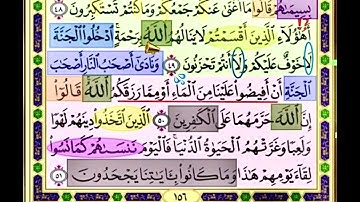 بِسِيمَىٰهُمْ قَالُوا۟ مَآ أَغْنَىٰ عَنكُمْ جَمْعُكُمْ وَمَا كُنتُمْ تَسْتَكْبِرُونَ ٤٨
أَهَٰٓؤُلَآءِ ٱلَّذِينَ أَقْسَمْتُمْ لَا يَنَالُهُمُ ٱللَّهُ بِرَحْمَةٍ ٱدْخُلُوا۟ ٱلْجَنَّةَ
لَا خَوْفٌ عَلَيْكُمْ وَلَآ أَنتُمْ تَحْزَنُونَ ٤٩ وَنَادَىٰٓ أَصْحَٰبُ ٱلنَّارِ أَصْحَٰبَ
ٱلْجَنَّةِ أَنْ أَفِيضُوا۟ عَلَيْنَا مِنَ ٱلْمَآءِ أَوْ مِمَّا رَزَقَكُمُ ٱللَّهُ قَالُوٓا۟
إِنَّ ٱللَّهَ حَرَّمَهُمَا عَلَى ٱلْكَٰفِرِينَ ٥٠ ٱلَّذِينَ ٱتَّخَذُوا۟ دِينَهُمْ لَهْوًا
وَلَعِبًا وَغَرَّتْهُمُ ٱلْحَيَوٰةُ ٱلدُّنْيَا فَٱلْيَوْمَ نَنسَىٰهُمْ كَمَا نَسُوا۟
لِقَآءَ يَوْمِهِمْ هَٰذَا وَمَا كَانُوا۟ بِـَٔايَٰتِنَا يَجْحَدُونَ ٥١
١٥٦